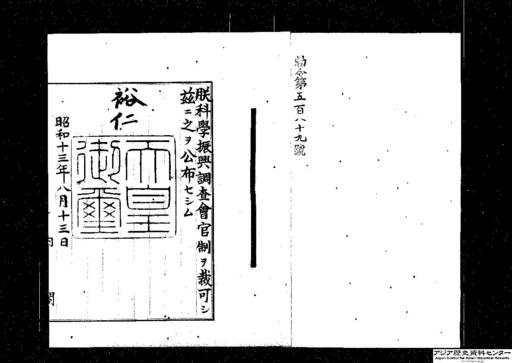 勅令第五百八十九號
朕科學振興調査會官制ヲ裁可シ
茲ニ之ヲ公布セシム
裕仁
天皇
御璽
昭和十三年八月十三日
内閣
アジア歴史資料センター
Japan Center for Asian Historical Records